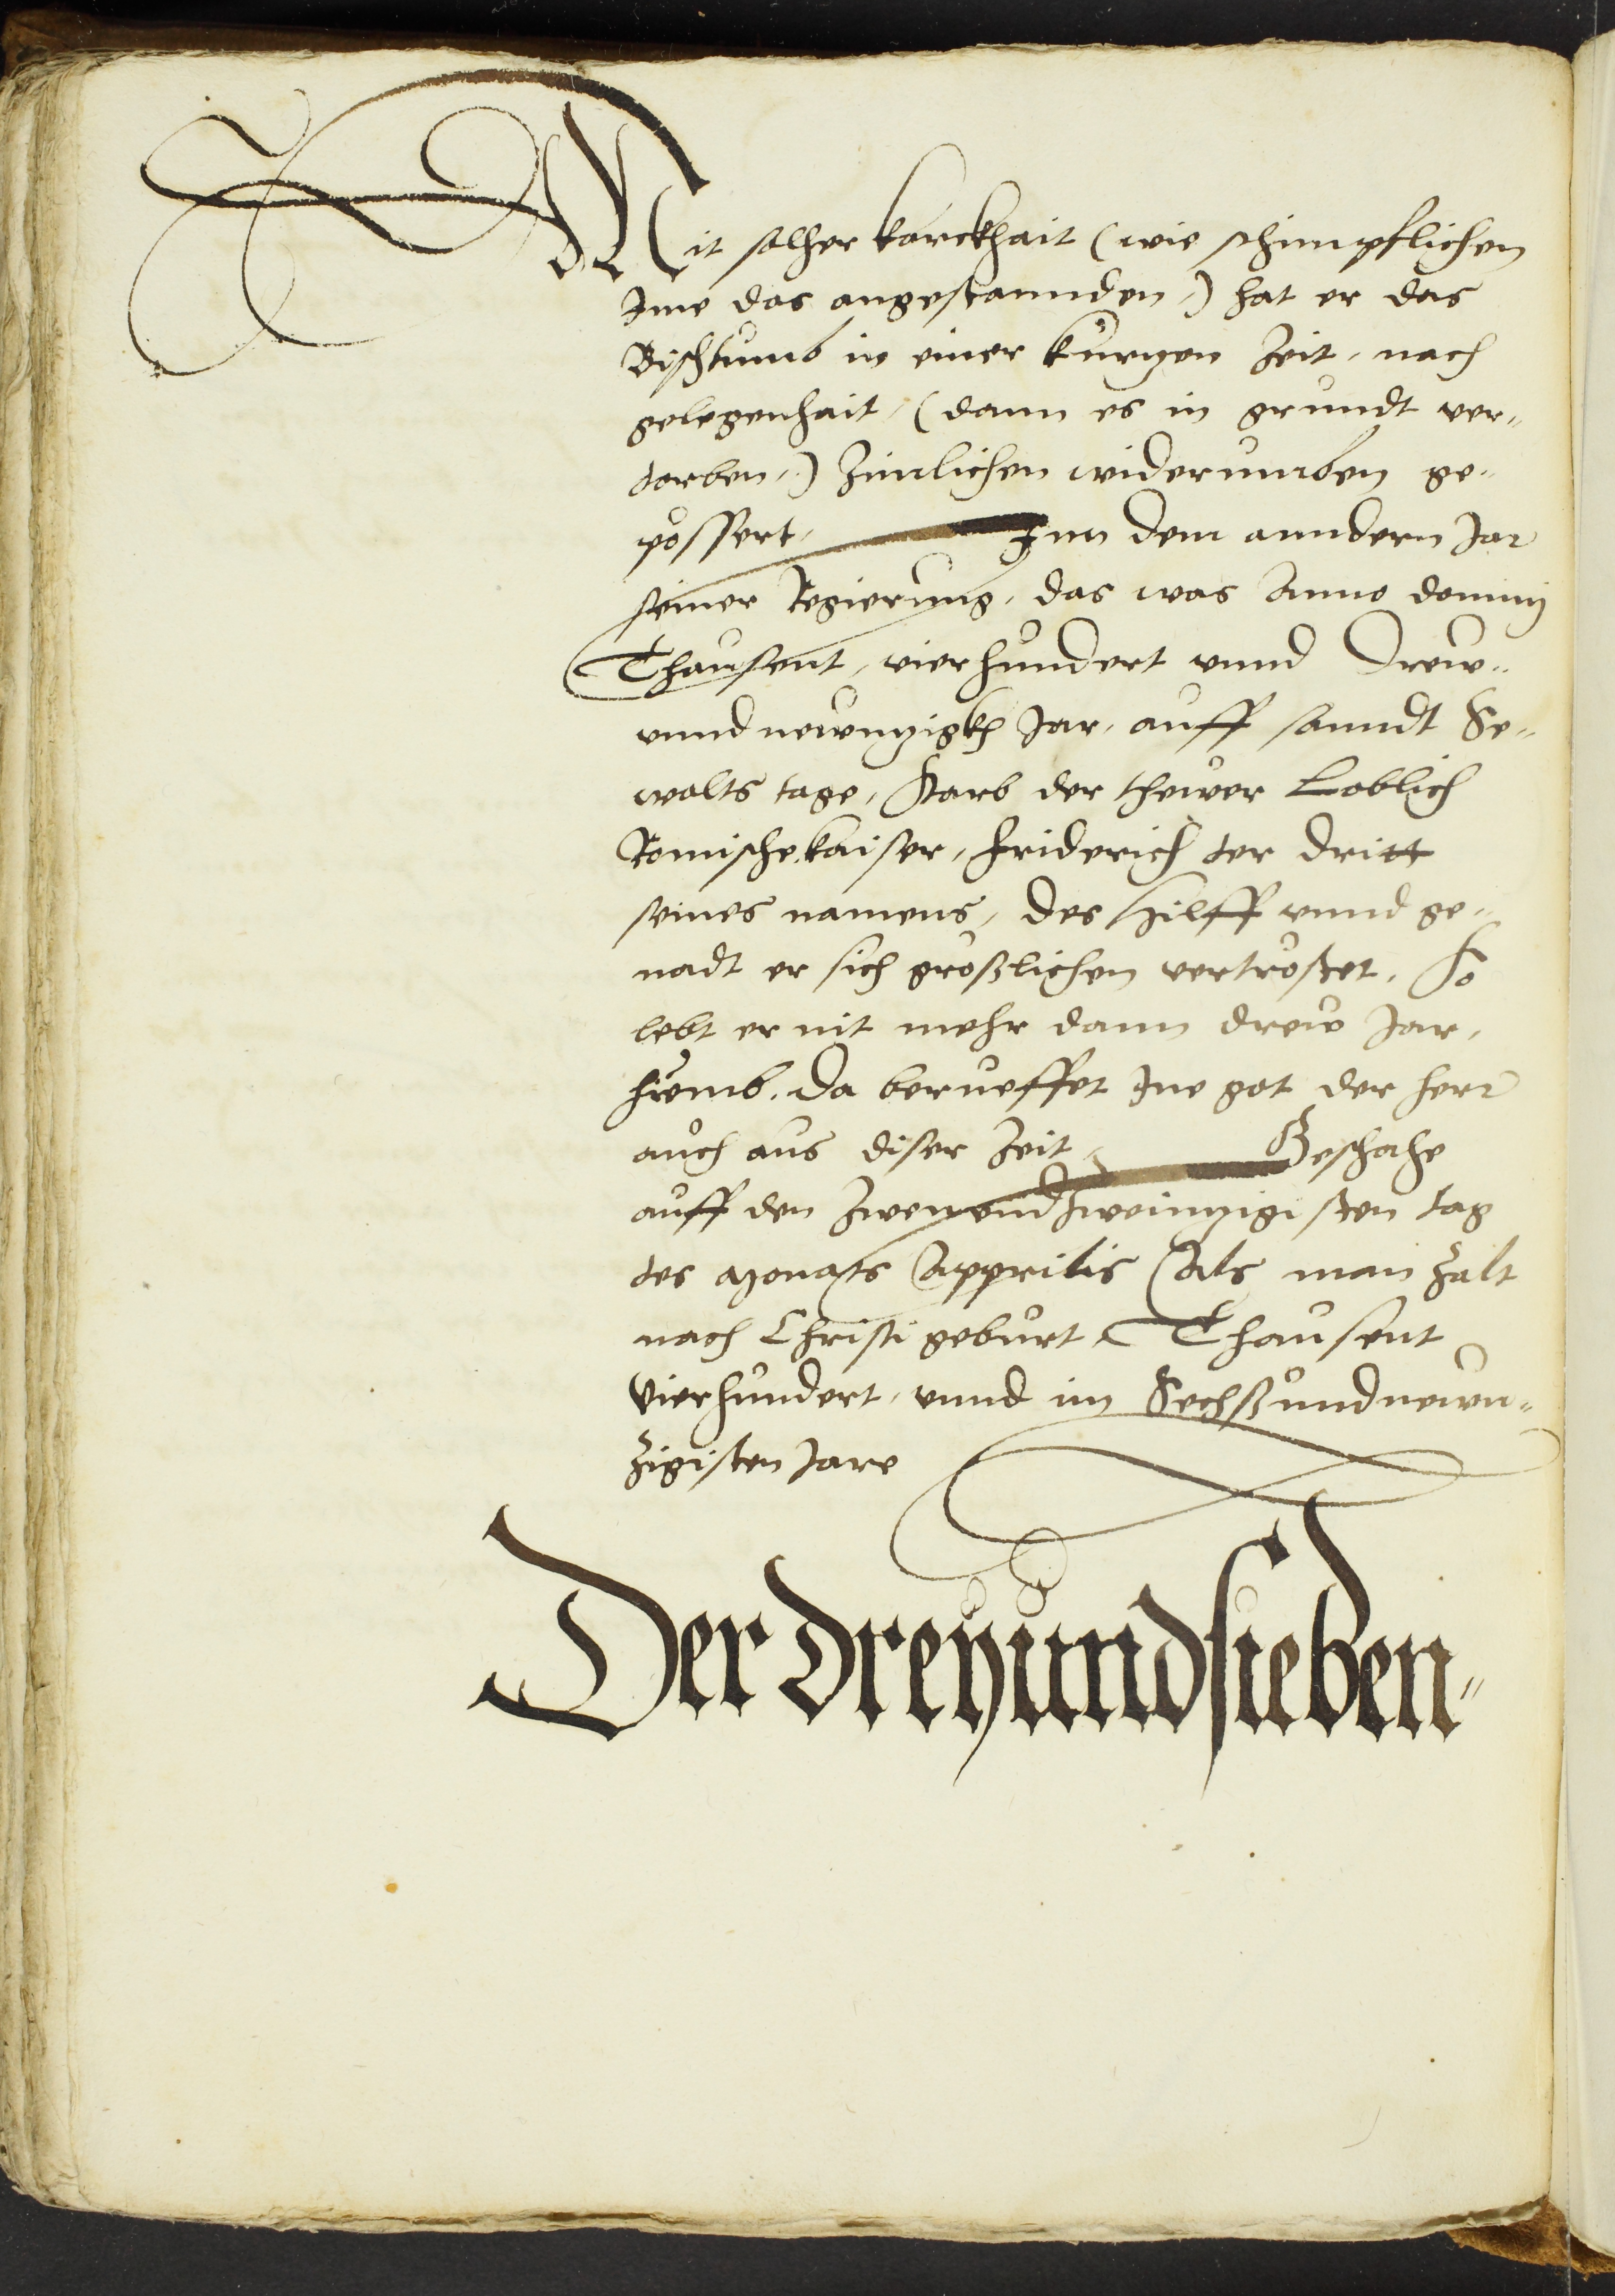 Mit solher karckhait (wie schimpflichen
Ime das angestannden,) hat er das
Bischtumb in einer kurtzen Zeit, nach
gelegenhait, (dann es in grundt ver-
dorben,) Zimlichen widerumben ge-
pössert, Inn dem anndern Jar
seiner Regierung, das was Anno dominj
Thausent, vierhundert vnnd Drew-
vnnd newntzigkh Jar, auff sanndt Se-
walts tage, Starb der thewer Loblich
Romische kaiser, Friderich der dritt
seines namens, Des Hilff vnnd ge-
nadt er sich großlichen vertröstet, So
lebt er nit mehr dann drew Jar,
 da berueffet Ine got der herr
auch aus diser Zeit, Geschahe
auff den Zwenvndzweintzigisten tag
des Monats Apprilis Als man zalt
nach Christi geburt Thausent
Vierhundert, vnnd im Sechßundnewn-
zigisten Jare
Der dreyundsieben-